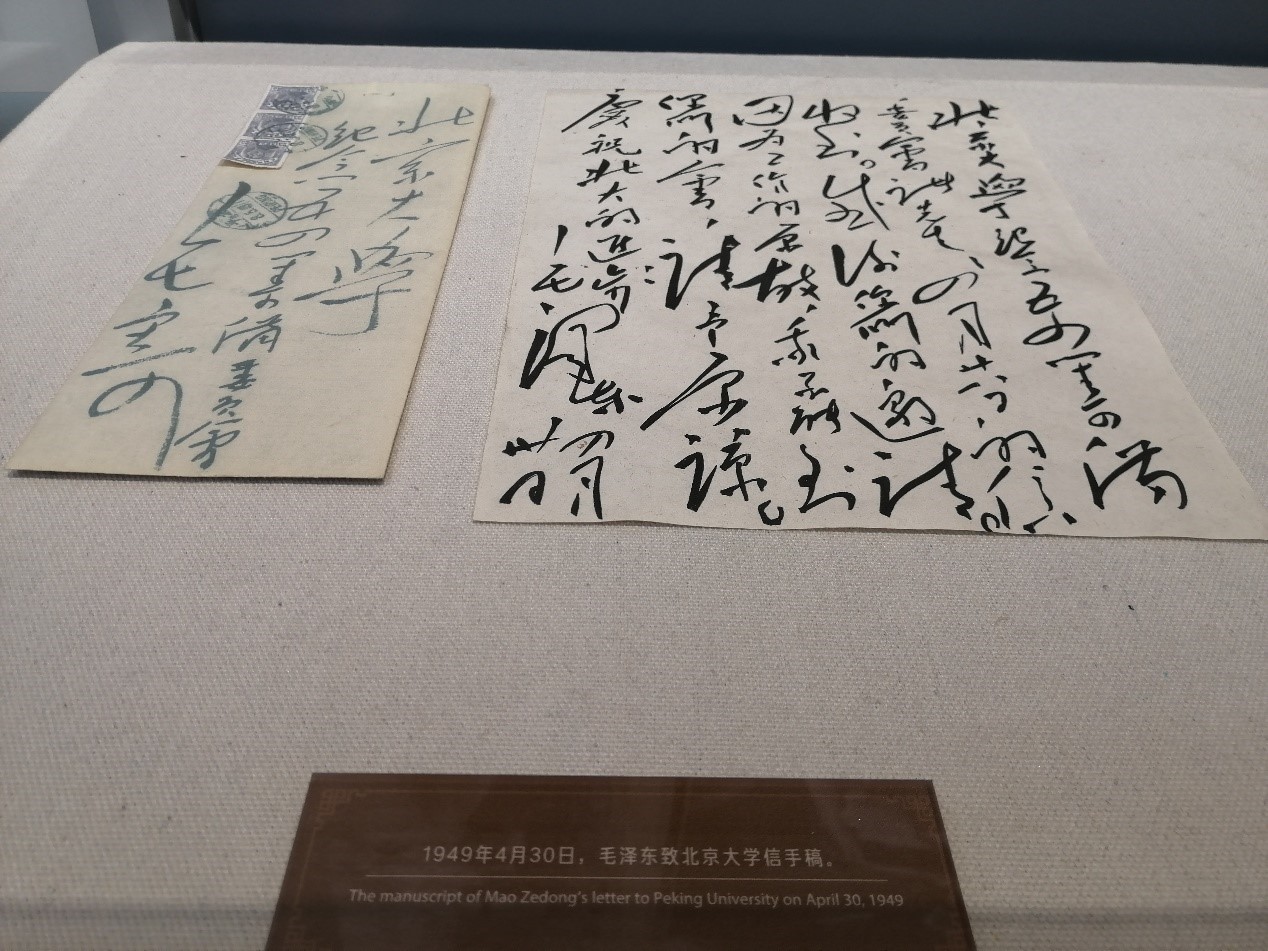 北京大學
紀念五四籌備委員會
毛寄
北京大學紀念五四籌備
委員會諸先生：四月廿八日的信
收到。感謝你們的邀請。
因為工作的原故，我不能到
你們的會，請予原諒。
慶祝北大的進步！
毛澤東
四月
卅日
1949年4月30日，毛泽东致北京大学信手稿。
The manuscript of Mao Zedong's letter to Peking University on April 30, 1949